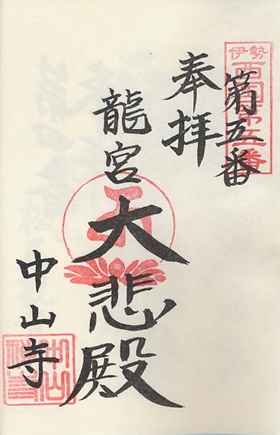 伊勢
西国第五番
奉拝
第五番
龍宮
大悲殿
中山寺